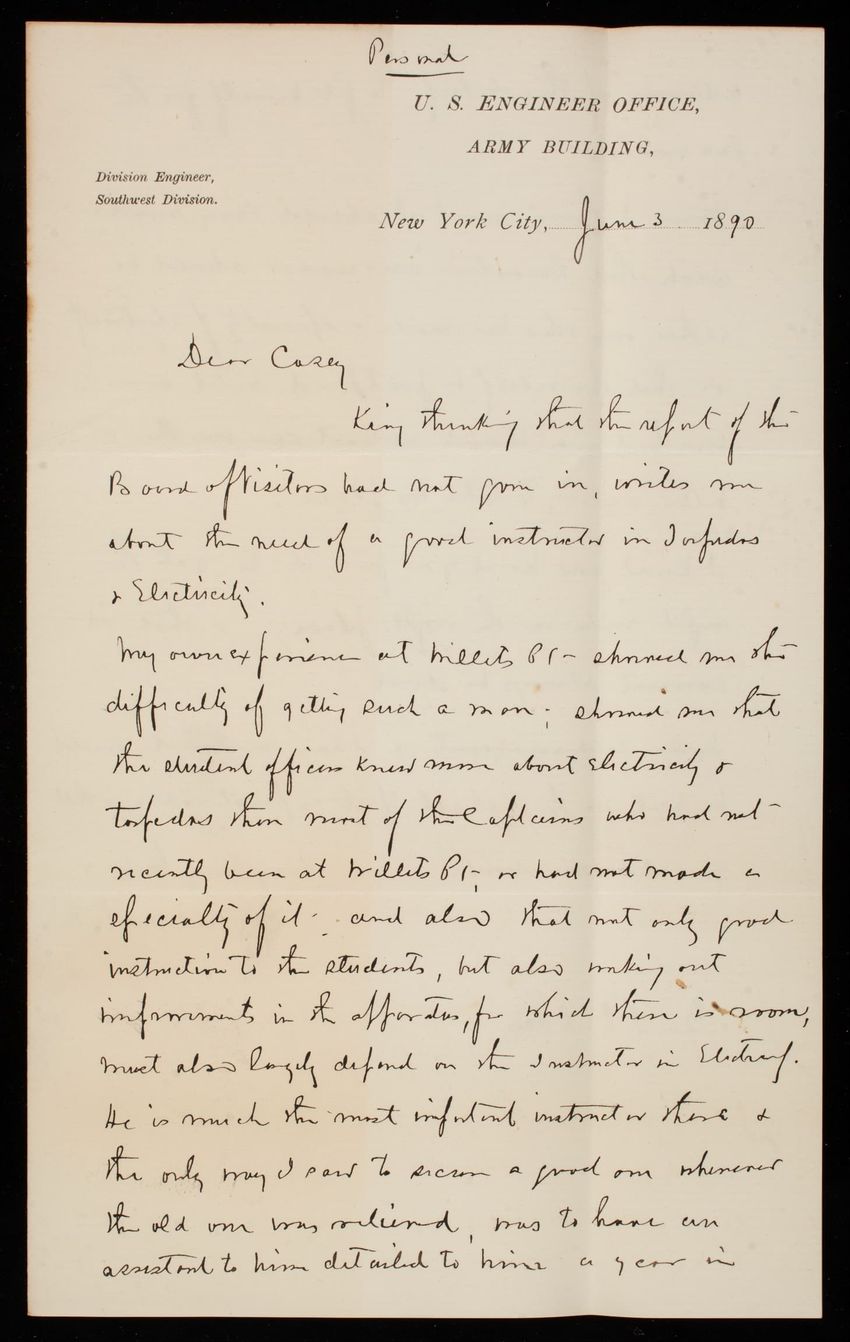 Personal
U. S. ENGINEER OFFICE,
ARMY BUILDING,
Division Engineer,
Southwest Division.
New York City, June 3 1890
Dear Casey
King thinking that the report of the
Board of Visitors had not gone in, writes me
about the need of a good instructor in Torpedos
& Electricity.
My own experience at Willets Pt showed me the
difficulty of getting such a man; showed me that
the student officers knew more about electricity &
torpedos than most of the Captains who had not
recently been at Willets Pt, or had not made a
specialty of it - and also that not only good
instruction to the students, but also working out
improvements in the apparatus, for which there is room,
must also largely depend on the Instructor in Electricy.
He is much the most important instructor there &
the only way I saw to secure a good one whenever
the old one was relieved, was to have an
assistant to him detailed to him a year in